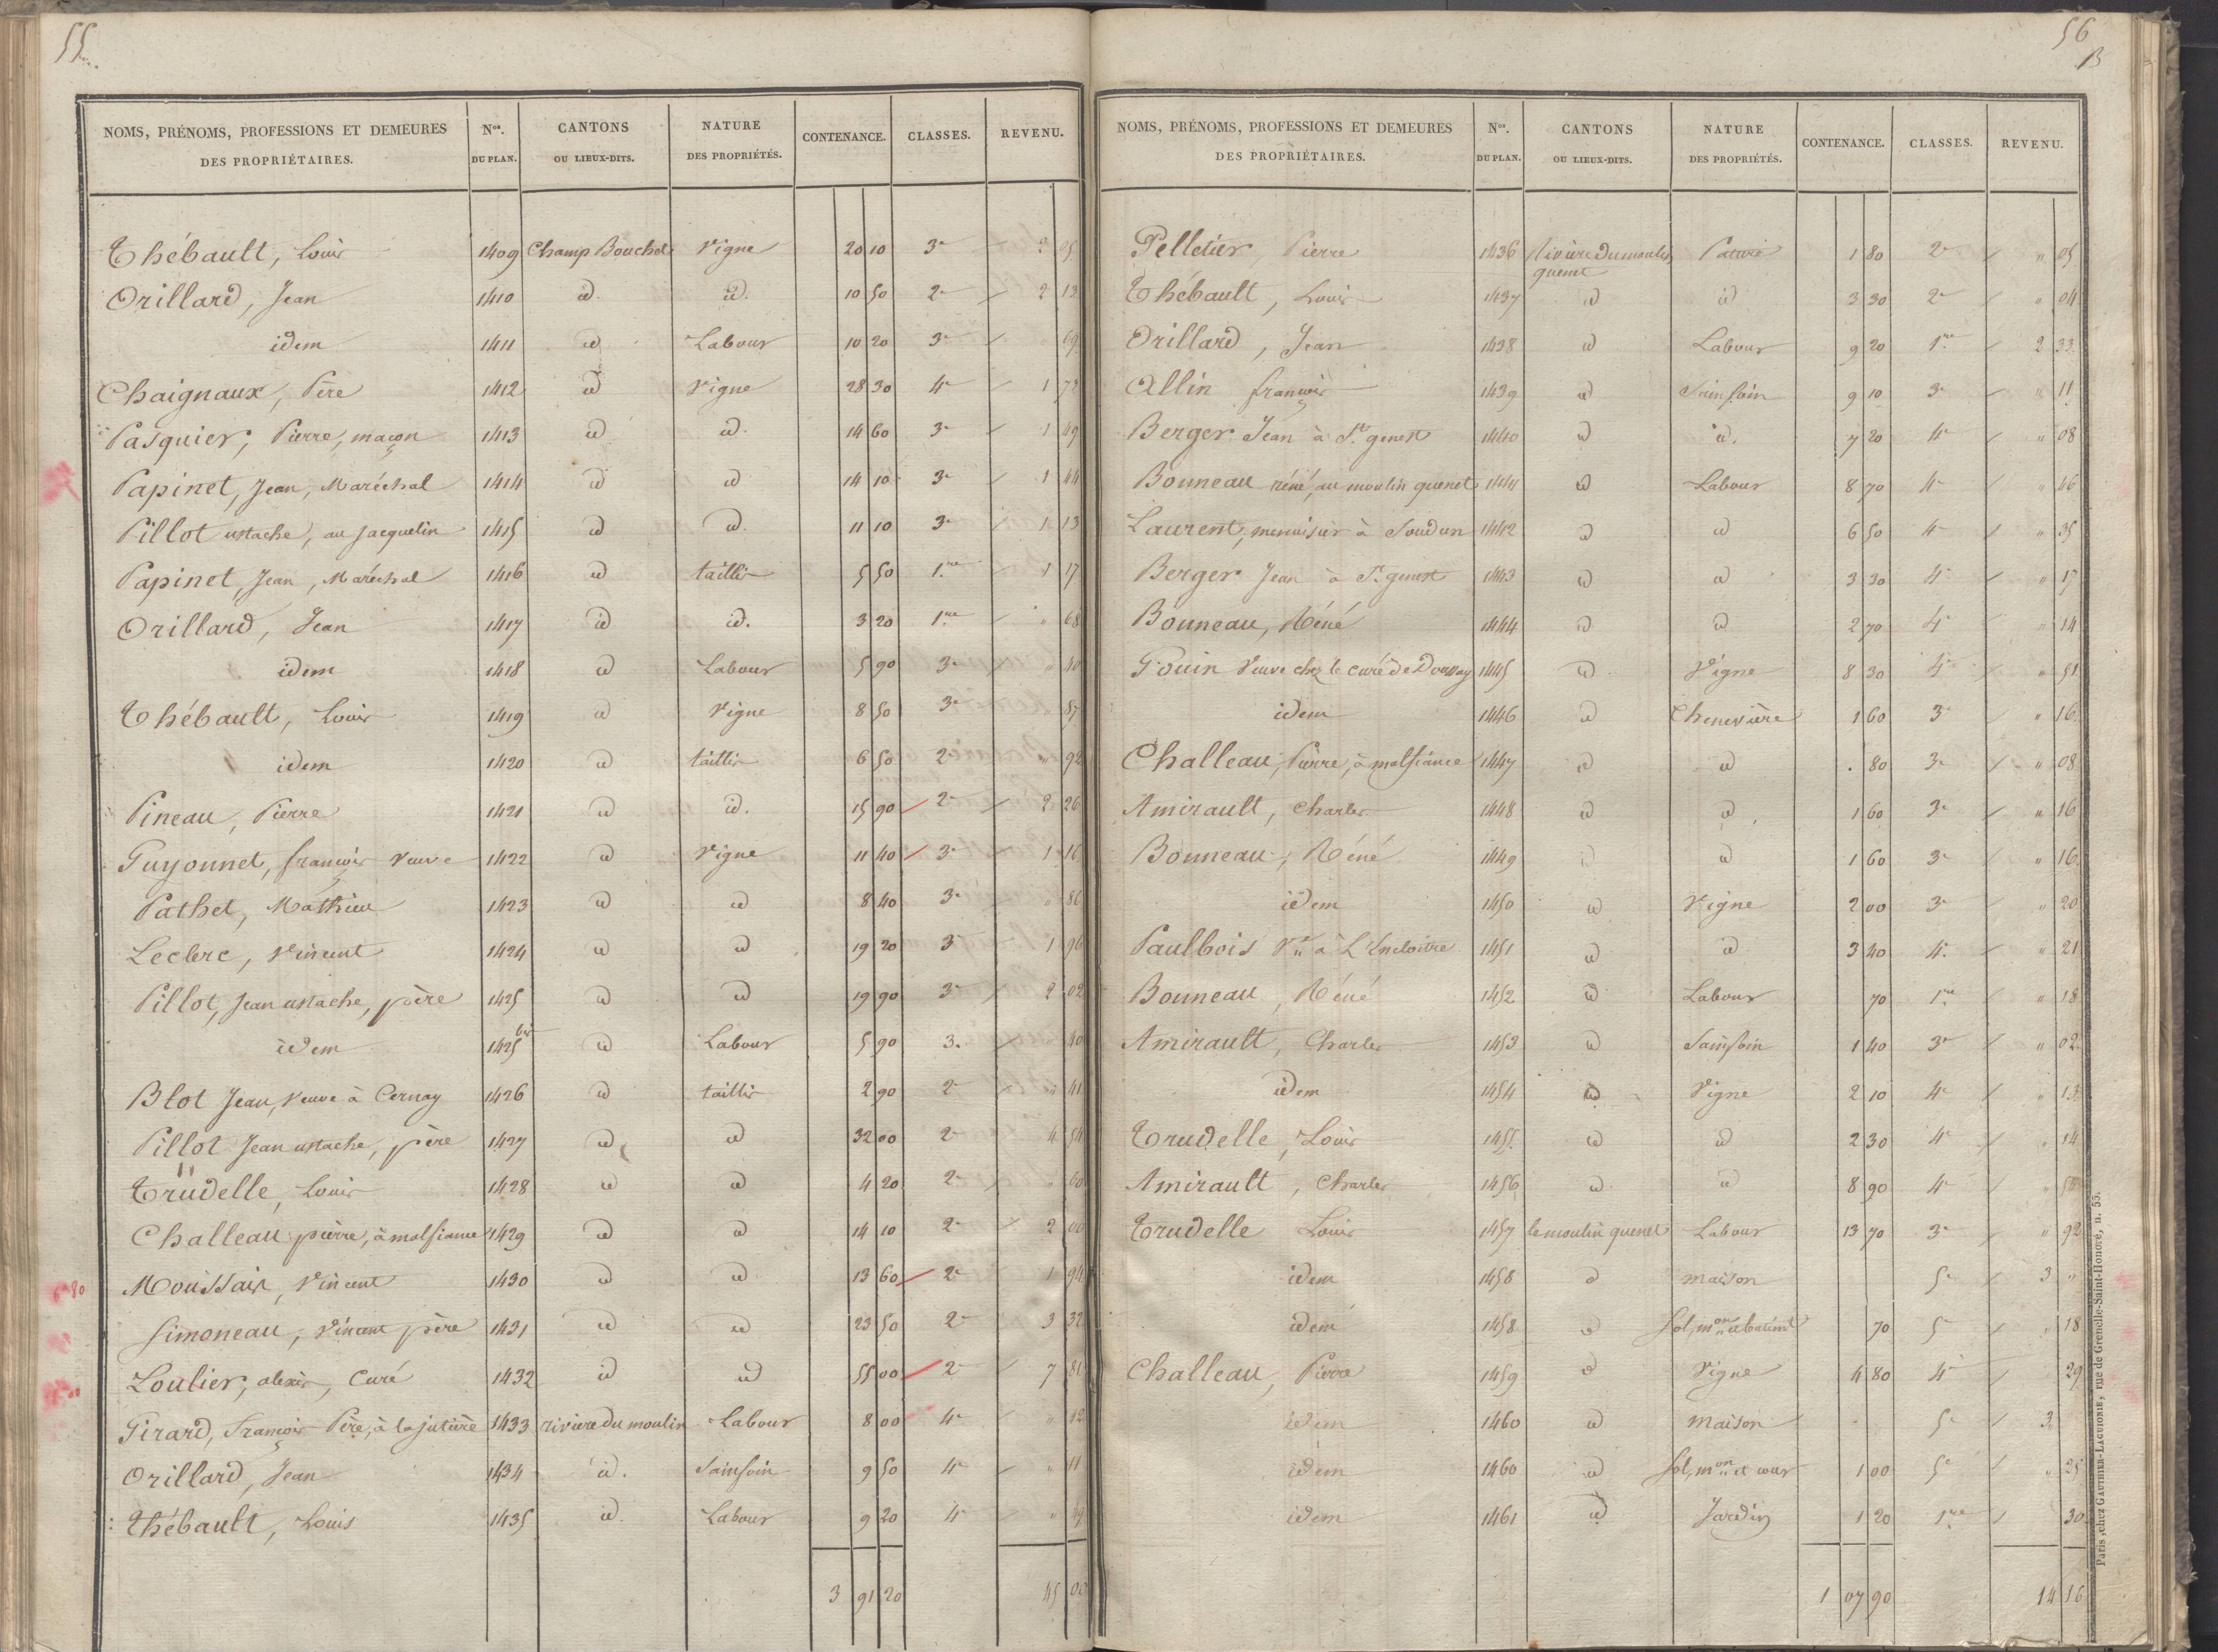 55
NOMS, PRÉNOMS, PROFESSIONS ET DEMEURES DES PROPRIÉTAIRES. Nos. DU PLAN. CANTONS OU LIEUX-DITS. NATURE DES PROPRIÉTÉS. CONTENANCE. CLASSES. REVENU.
Thébault, Louis 1409 Champ Bouchet Vigne 20 10 3e 2 05
Orillard, Jean 1410 id. id. 10 50 2e 2 13
idem 1411 id Labour 10 20 3e 69
Chaignaux, Père 1412 id Vigne 28 30 4e 1 73
Pasquier, Pierre, maçon 1413 id id. 14 60 3e 1 49
Papinet, Jean, Maréchal 1414 id id 14 10 3e 1 44
Pillot ustache, au jacquelin 1415 id id. 11 10 3e 1 13
Papinet, Jean, Maréchal 1416 id taillis 5 50 1re 1 17
Orillard, Jean 1417 id id. 3 20 1re " 68
idem 1418 id Labour 5 90 3e " 40
Thébault, Louis 1419 id Vigne 8 50 3e 87
idem 1420 id taillis 6 50 2e " 92
Pineau, Pierre 1421 id id. 15 90 2e 2 26
Guyonnet, françois Veuve 1422 id Vigne 11 40 3e 1 16
Pathet, Mathieu 1423 id id 8 40 3e " 86
Leclerc, Vincent 1424 id id 19 20 3e 1 96
Pillot, Jean ustache, père 1425 id id 19 90 3e 2 02
idem 1425 bis id Labour 5 90 3. 40
Blot Jean, Veuve à Cernay 1426 id taillis 2 90 2e " 41
Pillot Jean ustache, père 1427 id id 32 00 2e 4 54
Trudelle, Louis 1428 id id 4 20 2e " 60
Challeau pierre, à malfiance 1429 id id 14 10 2e 2 00
Moussais, Vincent 1430 id id 13 60 2e 1 94
Simoneau, Vincent père 1431 id id 23 50 2e 3 32
Loulier, alexis, Curé 1432 id id 55 00 2e 7 81
Girard, françois Père, à la jutière 1433 rivière du moulin Labour 8 00 4e " 42
Orillard, Jean 1434 id. Sainfoin 9 50 4e " 11
Thébault, Louis 1435 id. Labour 9 20 4e " 49
3 91 20 45 00
56
B
NOMS, PRÉNOMS, PROFESSIONS ET DEMEURES DES PROPRIÉTAIRES. Nos. DU PLAN. CANTONS OU LIEUX-DITS. NATURE DES PROPRIÉTÉS. CONTENANCE. CLASSES. REVENU.
Pelletier, Pierre 1436 Rivière du moulin quenet Pature 1 80 2e " 05
Thébault, Louis 1437 id id 3 30 2e " 04
Orillard, Jean 1438 id Labour 9 20 1re 2 33
Allin françois 1439 id Sainfoin 9 10 3e " 11
Berger Jean à St. genest 1440 id id. 7 20 4e " 08
Bonneau réné, au moulin quenet 1441 id Labour 8 70 4e " 46
Laurent, menuisier à Loudun 1442 id id 6 50 4e " 35
Berger Jean à St. genest 1443 id id 3 30 4e " 17
Bonneau, Réné 1444 id id 2 70 4e " 14
Gouin Veuve chez le curé de Doussay 1445 id Vigne 8 30 4e " 51
idem 1446 id Chenevière 1 60 3e " 16
Challeau, Pierre, à malfiance 1447 id id . 80 3e " 08
Amirault, Charles 1448 id id 1 60 3e " 16
Bonneau, Réné 1449 id id 1 60 3e " 16
idem 1450 id Vigne 2 00 3e " 20
Paulbois Ve à L'Encloitre 1451 id id 3 40 4e " 21
Bonneau, Réné 1452 id Labour 70 1re " 18
Amirault, Charles 1453 id Sainfoin 1 40 3e " 02
idem 1454 id Vigne 2 10 4e " 13
Trudelle, Louis 1455 id id 2 30 4e " 14
Amirault, Charles 1456 id id 8 90 4e
Trudelle Louis 1457 le moulin quenet Labour 13 70 3e " 92
idem 1458 id maison 5e 3 "
idem 1458 id Sol, mon et batimt 70 5e " 18
Challeau, Pierre 1459 id Vigne 4 80 4e 29
idem 1460 id maison 5e 3 "
idem 1460 id Sol, mon et cour 1 00 5e " 25
idem 1461 id Jardin 1 20 1re 30
1 07 90 14 16
Paris, chez GAUTHIER-LAGUIONIE, rue de Grenelle-Saint-Honoré, n. 55.